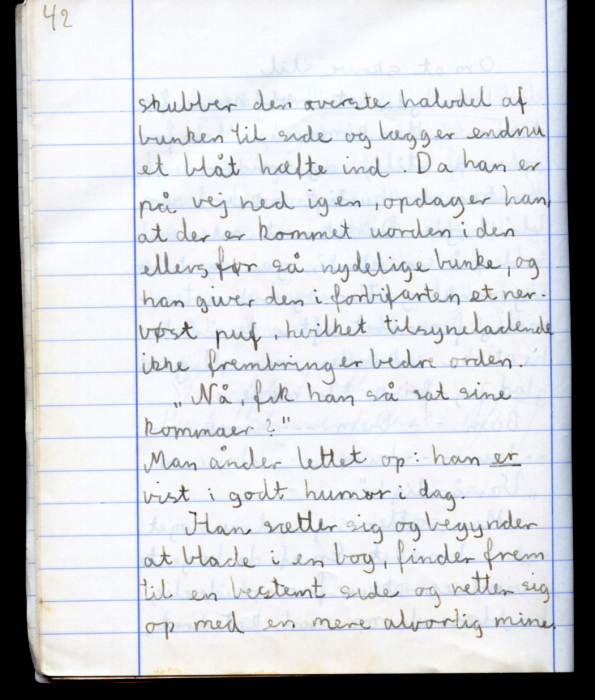 42
skubber den øverste halvdel af
bunken til side og lægger endnu
et blåt hæfte ind. Da han er
på vej ned igen, opdager han,
at der er kommet uorden i den
ellers før så nydelige bunke, og
han giver den i forbifarten et ner-
vøst puf, hvilket tilsyneladende
ikke frembringer bedre orden.
„Nå, fik han så sat sine
kommaer?"
Man ånder lettet op: han er
vist i godt humør i dag.
Han sætter sig og begynder
at blade i en bog, finder frem
til en bestemt side og retter sig
op med en mere alvorlig mine.